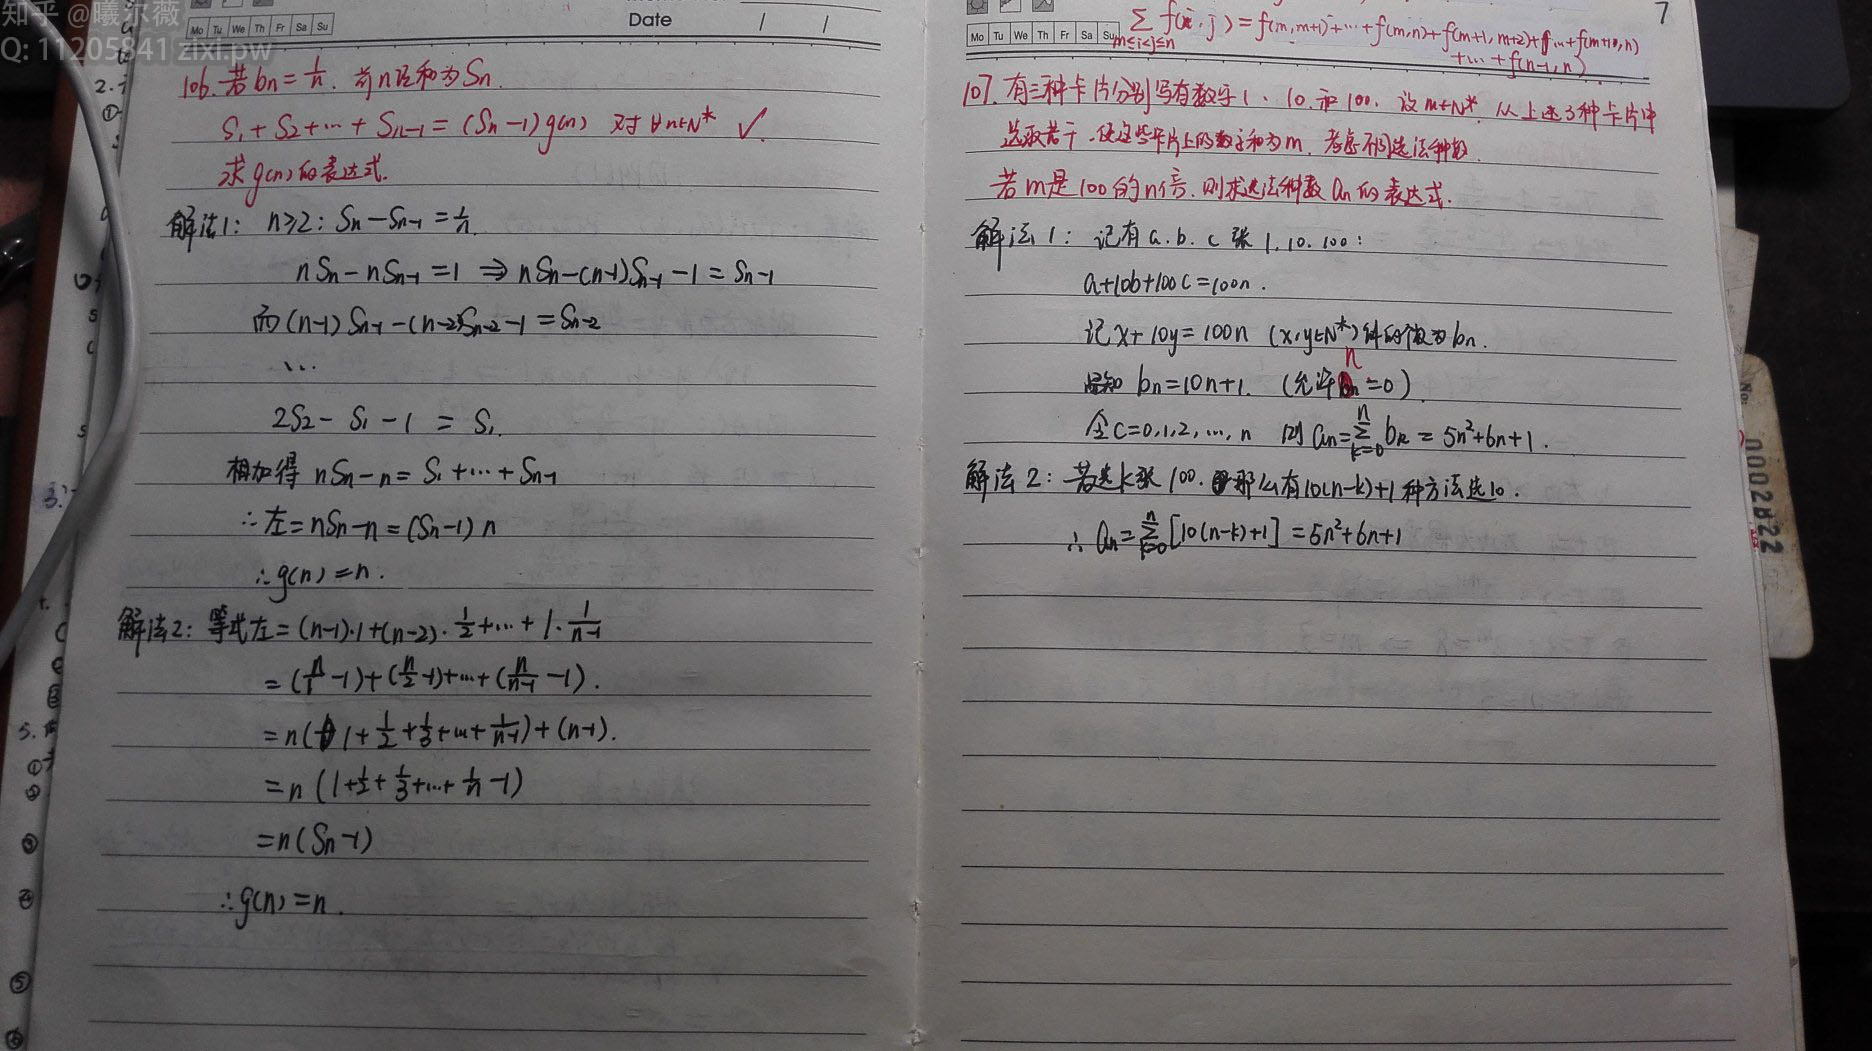 知乎 @曦尔薇
Q: 11205841 zixi.pw
Mo Tu We Th Fr Sa Su
Date / /
106. 若bn=1/n. 前n项和为Sn.
S1+S2+…+Sn-1=(Sn-1)g(n) 对∀n∈N* ✓.
求g(n)的表达式.
解法1: n≥2: Sn-Sn-1=1/n.
nSn-nSn-1=1 ⇒ nSn-(n-1)Sn-1-1=Sn-1
而(n-1)Sn-1-(n-2)Sn-2-1=Sn-2
…
2S2-S1-1=S1.
相加得 nSn-n=S1+…+Sn-1
∴左=nSn-n=(Sn-1)n
∴g(n)=n.
解法2: 等式左=(n-1)·1+(n-2)·1/2+…+1·1/(n-1)
=(n/1-1)+(n/2-1)+…+(n/(n-1)-1).
=n(1+1/2+1/3+…+1/(n-1))+(n-1).
=n(1+1/2+1/3+…+1/n-1)
=n(Sn-1)
∴g(n)=n.
7
Mo Tu We Th Fr Sa Su
∑ m≤i<j≤n f(i,j)=f(m,m+1)+…+f(m,n)+f(m+1,m+2)+…+f(m+1,n)
+…+f(n-1,n)
107. 有三种卡片分别写有数字1、10和100. 设m∈N*. 从上述3种卡片中
选取若干.使这些卡片上的数字和为m. 考虑不同选法种数.
若m是100的n倍. 则求选法种数an的表达式.
解法1: 记有a.b.c张1.10.100:
a+10b+100c=100n.
记x+10y=100n (x,y∈N*)解的个数为bn.
易知 bn=10n+1. (允许n=0)
令c=0,1,2,…,n 则an=∑(k=0→n) bk=5n²+6n+1.
解法2: 若选k张100. 那么有10(n-k)+1种方法选10.
∴an=∑(k=0→n)[10(n-k)+1]=5n²+6n+1
No: 0002822